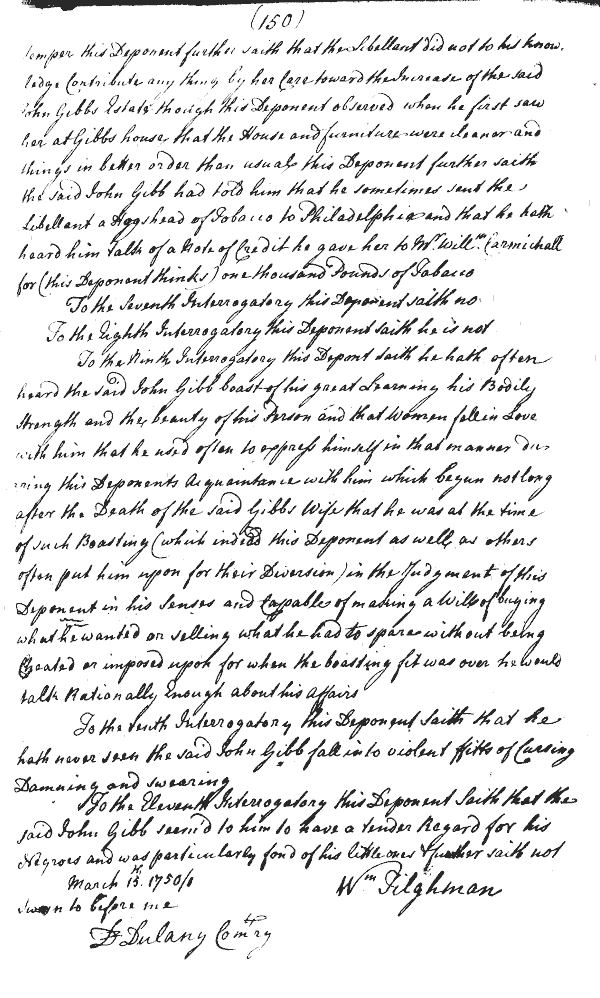 (150)
temper this Deponent further saith that the Libellant did not to his know.
ledge Contribute any thing by her Care toward the Increase of the said
John Gibbs Estate though this Deponent observed when he first saw
her at Gibbs house that the House and furniture were cleaner and
things in better order than usual this Deponent further saith
the said John Gibb had told him that he sometimes sent the
Libellant a Hogshead of Tobacco to Philadelphia and that he hath
heard him talk of a Note of Credit he gave her to Mr. Willm. Carmichall
for (this Deponent thinks) one thousand Pounds of Tobacco
To the Seventh Interrogatory this Deponent saith no
To the Eighth Interrogatory this Deponent saith he is not
To the Ninth Interrogatory this Depont saith he hath often
heard the said John Gibb boast of his great Learning his Bodily
Strength and the beauty of his Person and that Women fall in Love
with him that he used often to express himself in that manner du
ring this Deponents Acquaintance with him which begun not long
after the Death of the said Gibbs Wife that he was at the time
of such Boasting (which indeed this Deponent as well as others
often put him upon for their Diversion) in the Judgment of this
Deponent in his Senses and Capable of making a Will of buying
what he wanted or selling what he had to spare without being
Cheated or imposed upon for when the boasting fit was over he would
talk Rationally Enough about his Affairs
To the tenth Interrogatory this Deponent Saith that he
hath never seen the said John Gibb fall into violent ffitts of Cursing
Damning and swearing
To the Eleventh Interrogatory this Deponent Saith that the
said John Gibb seem'd to him to have a tender Regard for his
Negroes and was particularly fond of his little ones & further saith not
March 15th. 1750/1 Wm Tilghman
Sworn to before me
D Dulany Comry